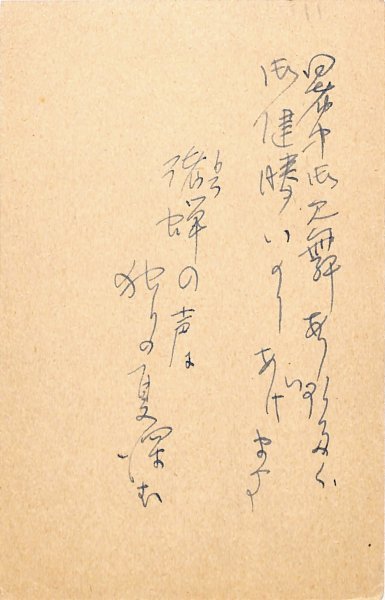 暑中御見舞あり
御健勝いのりあげます
蝉の声に
独りの夏深む